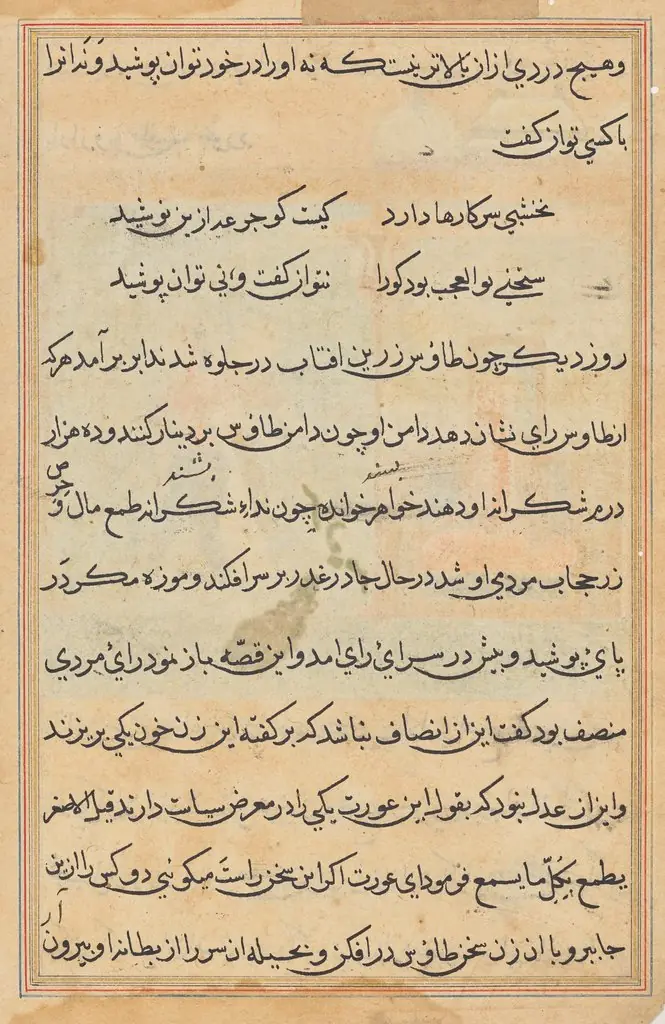 وهیچ دردي از ان بالاتر نیست که نه اورا در خود توان پوشید و نه انرا
با کسي توان گفت
نخشبي سر کارها دارد کیست کو جرعه از بن نوشید
سخنے بوالعجب بود کورا نتوان گفت و ني توان پوشید
روز دیگر چون طاؤس زرین افتاب در جلوه شد ندا بر بر آمد هرکه
از طاوس راي نشان دهد دامن او چون دامن طاؤس بر دینار کنند و ده هزار
درم شکرانه او دهند خواهر خوانده چون نداء شکرانه بشنید طمع مال و حرص
زر حجاب مردي او شد در حال چادر غدر بر سر افکند و موزه مکر در
پائ پوشید و پیش در سرائ راي امد و این قصّه باز نمود رائ مردي
منصف بود گفت این از انصاف نباشد که بر گفته این زن خون یکي بریزند
و این از عدل نبود که بقول این عورت یکي را در معرض سیاست دارند قیل الاصغر
یطمع بکلّ ما یسمع فرمود اي عورت اگر این سخن راست میگوئي دو کس را ازین
جا ببر و با ان زن سخن طاؤس در افکن و بحیله ان سر را از بطانه او بیرون آر